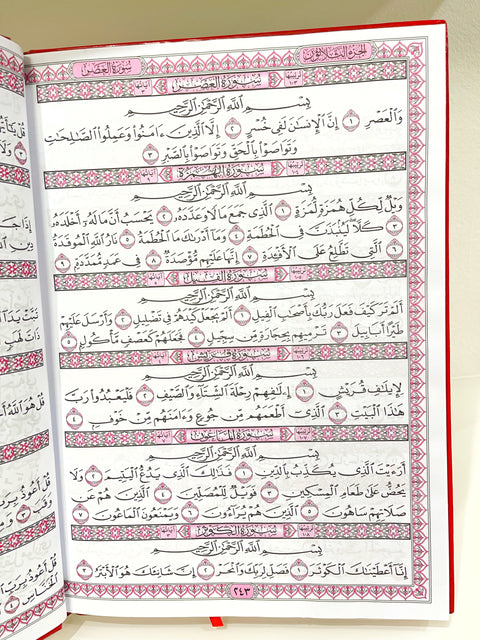 الجزء الثلاثون
سورة العصر
سُورَةُ العَصْرِ
بِسْمِ اللَّهِ الرَّحْمَٰنِ الرَّحِيمِ
وَالْعَصْرِ ١ إِنَّ الْإِنسَٰنَ لَفِي خُسْرٍ ٢ إِلَّا الَّذِينَ ءَامَنُوا وَعَمِلُوا الصَّٰلِحَٰتِ
وَتَوَاصَوْا بِالْحَقِّ وَتَوَاصَوْا بِالصَّبْرِ ٣
سُورَةُ الهُمَزَةِ
بِسْمِ اللَّهِ الرَّحْمَٰنِ الرَّحِيمِ
وَيْلٌ لِّكُلِّ هُمَزَةٍ لُّمَزَةٍ ١ الَّذِي جَمَعَ مَالًا وَعَدَّدَهُ ٢ يَحْسَبُ أَنَّ مَالَهُ أَخْلَدَهُ
٣ كَلَّا لَيُنبَذَنَّ فِي الْحُطَمَةِ ٤ وَمَا أَدْرَىٰكَ مَا الْحُطَمَةُ ٥ نَارُ اللَّهِ الْمُوقَدَةُ
٦ الَّتِي تَطَّلِعُ عَلَى الْأَفْـِٔدَةِ ٧ إِنَّهَا عَلَيْهِم مُّؤْصَدَةٌ ٨ فِي عَمَدٍ مُّمَدَّدَةٍ ٩
سُورَةُ الفِيلِ
بِسْمِ اللَّهِ الرَّحْمَٰنِ الرَّحِيمِ
أَلَمْ تَرَ كَيْفَ فَعَلَ رَبُّكَ بِأَصْحَٰبِ الْفِيلِ ١ أَلَمْ يَجْعَلْ كَيْدَهُمْ فِي تَضْلِيلٍ ٢ وَأَرْسَلَ عَلَيْهِمْ
طَيْرًا أَبَابِيلَ ٣ تَرْمِيهِم بِحِجَارَةٍ مِّن سِجِّيلٍ ٤ فَجَعَلَهُمْ كَعَصْفٍ مَّأْكُولٍ ٥
سُورَةُ قُرَيْشٍ
بِسْمِ اللَّهِ الرَّحْمَٰنِ الرَّحِيمِ
لِإِيلَٰفِ قُرَيْشٍ ١ إِۦلَٰفِهِمْ رِحْلَةَ الشِّتَاءِ وَالصَّيْفِ ٢ فَلْيَعْبُدُوا رَبَّ
هَٰذَا الْبَيْتِ ٣ الَّذِي أَطْعَمَهُم مِّن جُوعٍ وَءَامَنَهُم مِّنْ خَوْفٍ ٤
سُورَةُ المَاعُونِ
بِسْمِ اللَّهِ الرَّحْمَٰنِ الرَّحِيمِ
أَرَءَيْتَ الَّذِي يُكَذِّبُ بِالدِّينِ ١ فَذَٰلِكَ الَّذِي يَدُعُّ الْيَتِيمَ ٢ وَلَا
يَحُضُّ عَلَىٰ طَعَامِ الْمِسْكِينِ ٣ فَوَيْلٌ لِّلْمُصَلِّينَ ٤ الَّذِينَ هُمْ عَن
صَلَاتِهِمْ سَاهُونَ ٥ الَّذِينَ هُمْ يُرَاءُونَ ٦ وَيَمْنَعُونَ الْمَاعُونَ ٧
سُورَةُ الكَوْثَرِ
بِسْمِ اللَّهِ الرَّحْمَٰنِ الرَّحِيمِ
إِنَّا أَعْطَيْنَٰكَ الْكَوْثَرَ ١ فَصَلِّ لِرَبِّكَ وَانْحَرْ ٢ إِنَّ شَانِئَكَ هُوَ الْأَبْتَرُ ٣
٢٤٣
تَبَّتْ يَدَا
ذَاتَ لَهَبٍ
قُلْ هُوَ اللَّهُ
قُلْ أَعُوذُ بِرَبِّ
وَقَبَ
قُلْ أَعُوذُ بِرَبِّ
الْخَنَّاسِ